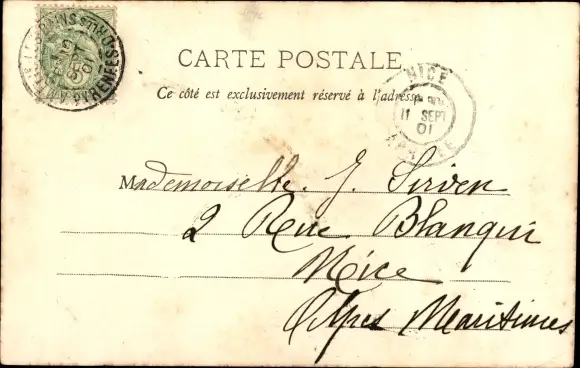 CARTE POSTALE
Ce côté est exclusivement réservé à l'adresse
NICE
11 SEPT
01
Mademoiselle J. Sirven
2 Rue Blanqui
Nice
Alpes Maritimes